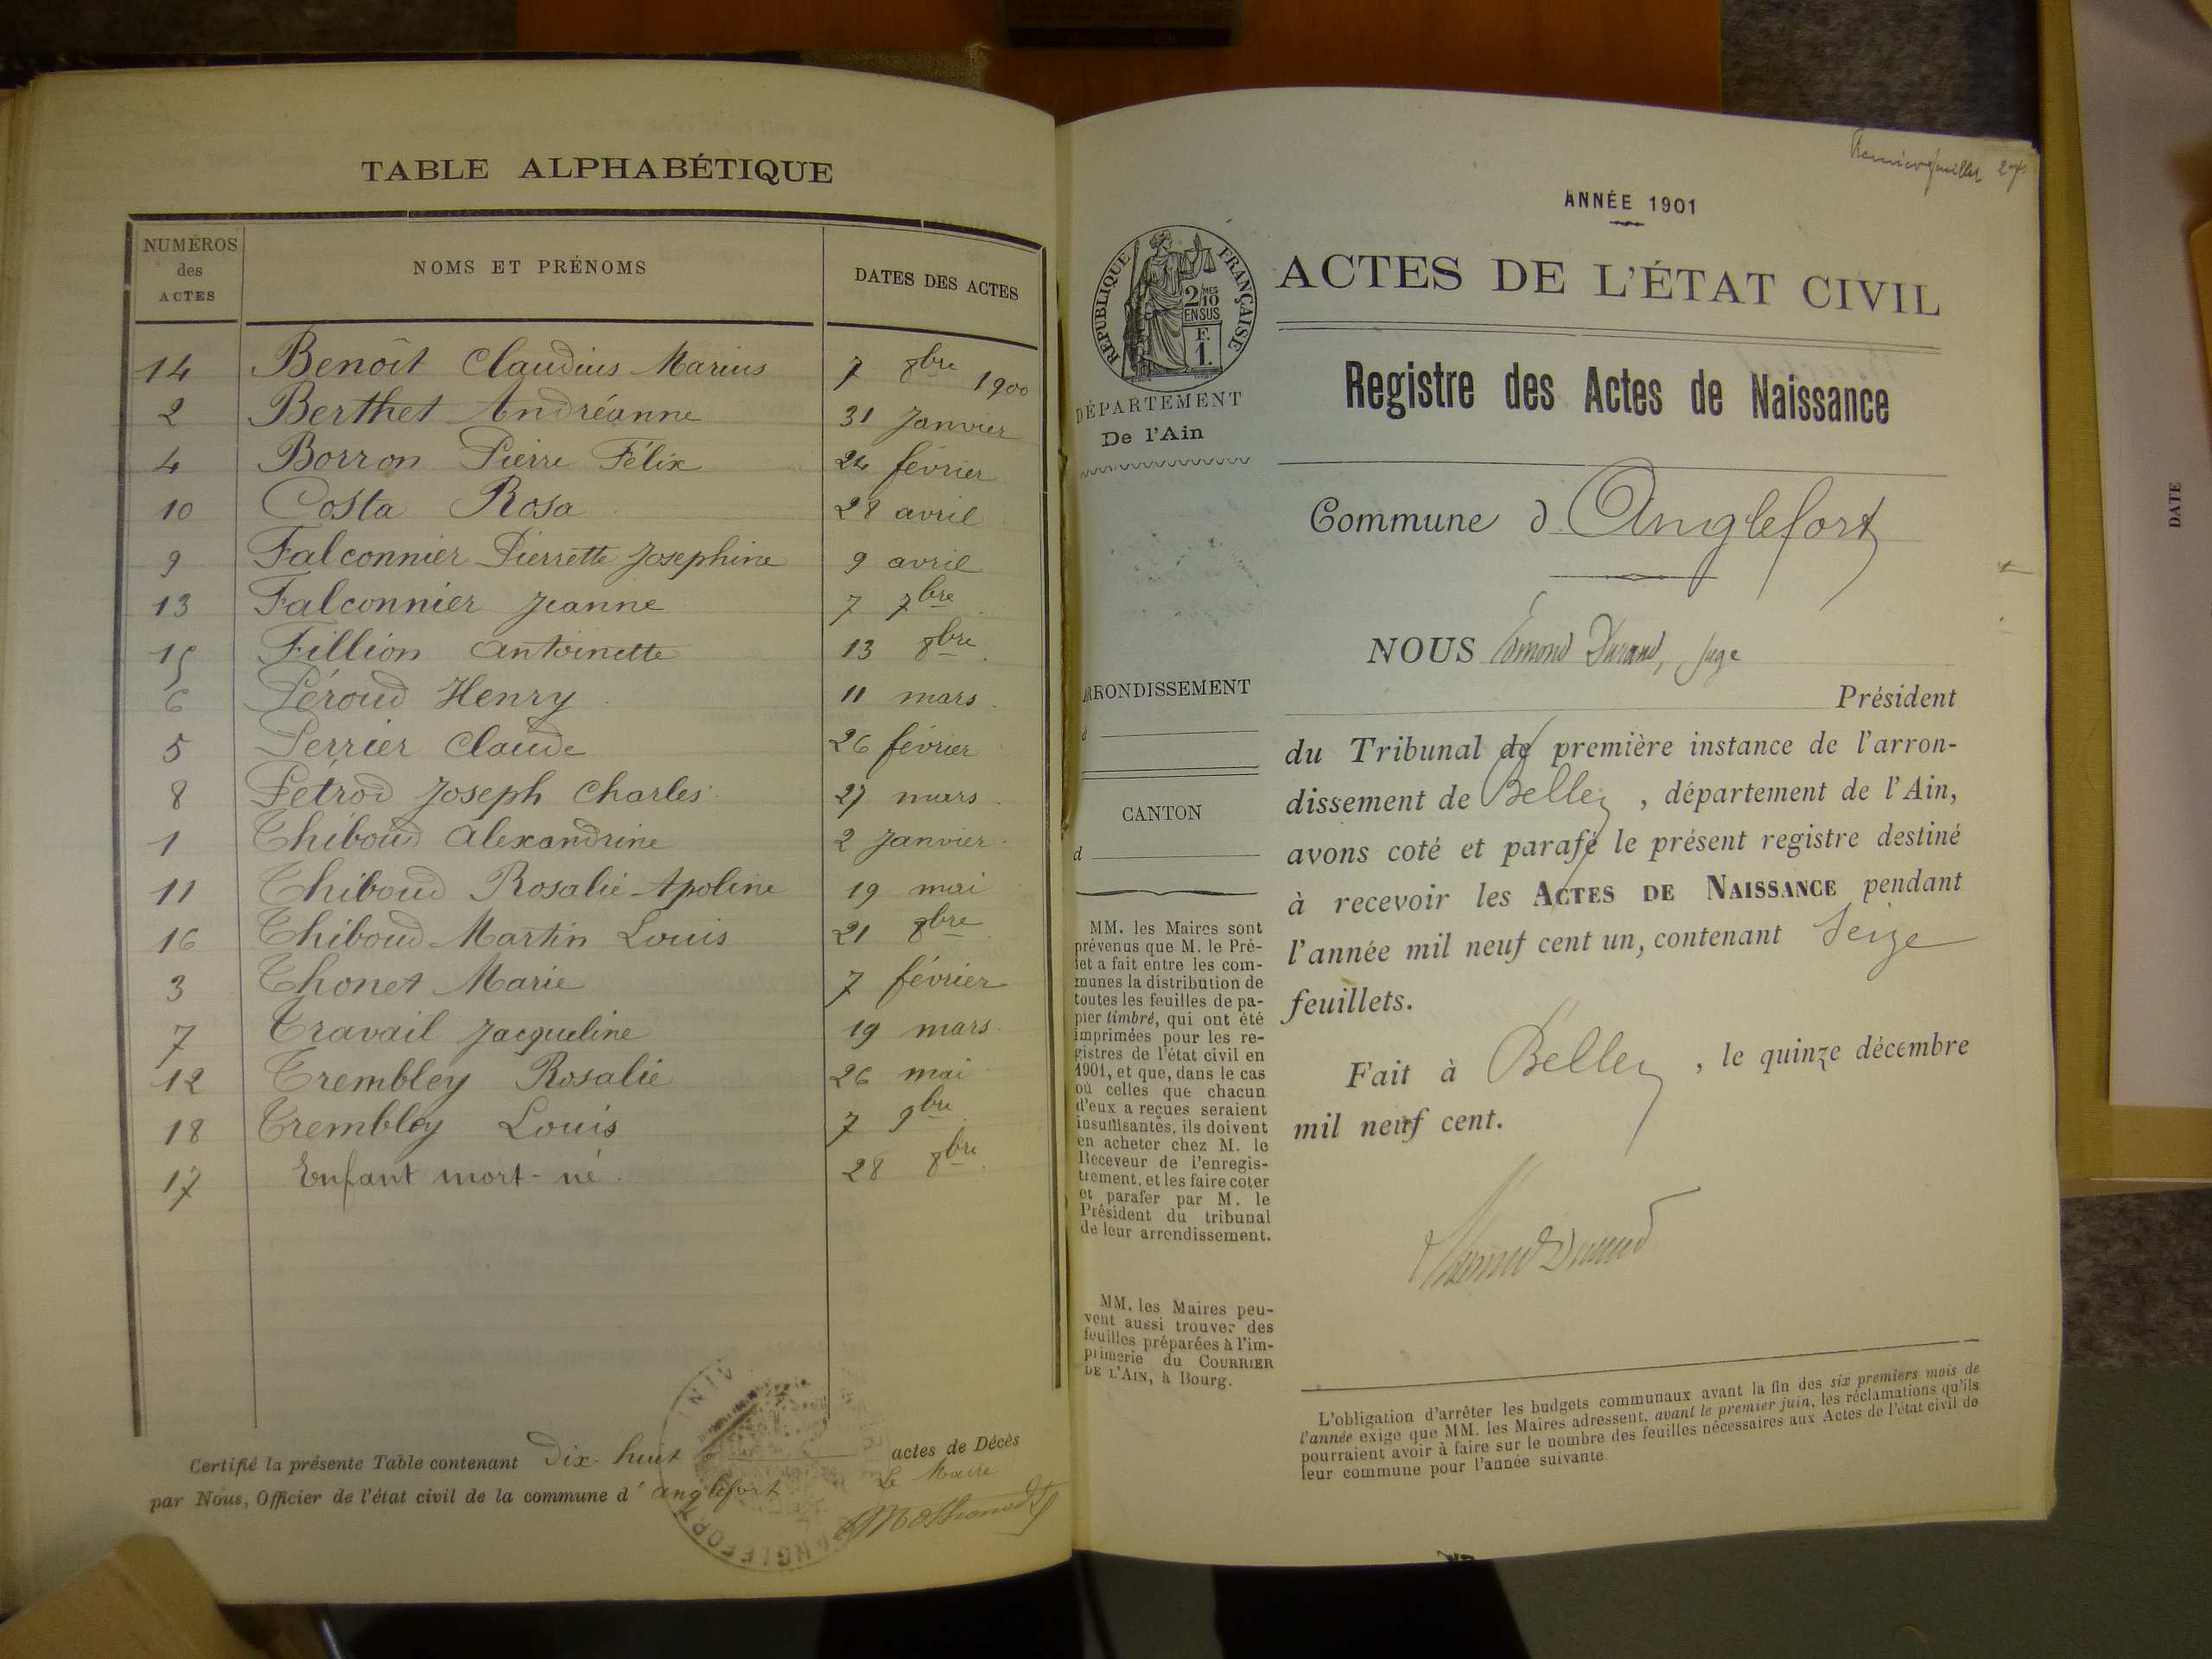 TABLE ALPHABÉTIQUE
NUMÉROS
des
ACTES
NOMS ET PRÉNOMS
DATES DES ACTES
14 Benoît Claudius Marius 7 8bre 1900
2 Berthet Andréanne 31 Janvier
4 Borron Pierre Félix 24 février
10 Costa Rosa 28 avril
9 Falconnier Pierrette Josephine 9 avril
13 Falconnier Jeanne 7 7bre
15 Fillion Antoinette 13 8bre
6 Péroud Henry 11 mars
5 Perrier Claude 26 février
8 Pétrod Joseph Charles 27 mars
1 Thiboud Alexandrine 2 Janvier
11 Thiboud Rosalie Apoline 19 mai
16 Thiboud Martin Louis 21 8bre
3 Thonet Marie 7 février
7 Travail Jacqueline 19 mars
12 Trembley Rosalie 26 mai
18 Trembley Louis 7 9bre
17 Enfant mort-né 28 8bre
Certifié la présente Table contenant Dix-huit actes de Décès
par Nous, Officier de l'état civil de la commune d'Anglefort
Le Maire
ANGLEFORT
27
ANNÉE 1901
RÉPUBLIQUE FRANÇAISE
2/10 MES
EN SUS
F.
1.
ACTES DE L'ÉTAT CIVIL
DÉPARTEMENT
De l'Ain
Registre des Actes de Naissance
Commune d Anglefort
NOUS Edmond Durand, juge
Président
du Tribunal de première instance de l'arron-
dissement de Belley, département de l'Ain,
avons coté et parafé le présent registre destiné
à recevoir les ACTES DE NAISSANCE pendant
l'année mil neuf cent un, contenant Seize
feuillets.
Fait à Belley, le quinze décembre
mil neuf cent.
ARRONDISSEMENT
d
CANTON
d
MM. les Maires sont
prévenus que M. le Pré-
fet a fait entre les com-
munes la distribution de
toutes les feuilles de pa-
pier timbré, qui ont été
imprimées pour les re-
gistres de l'état civil en
1901, et que, dans le cas
où celles que chacun
d'eux a reçues seraient
insuffisantes, ils doivent
en acheter chez M. le
Receveur de l'enregis-
trement, et les faire coter
et parafer par M. le
Président du tribunal
de leur arrondissement.
MM. les Maires peu-
vent aussi trouver des
feuilles préparées à l'im-
primerie du COURRIER
DE L'AIN, à Bourg.
L'obligation d'arrêter les budgets communaux avant la fin des six premiers mois de
l'année exige que MM. les Maires adressent, avant le premier juin, les réclamations qu'ils
pourraient avoir à faire sur le nombre des feuilles nécessaires aux Actes de l'état civil de
leur commune pour l'année suivante.
DATE